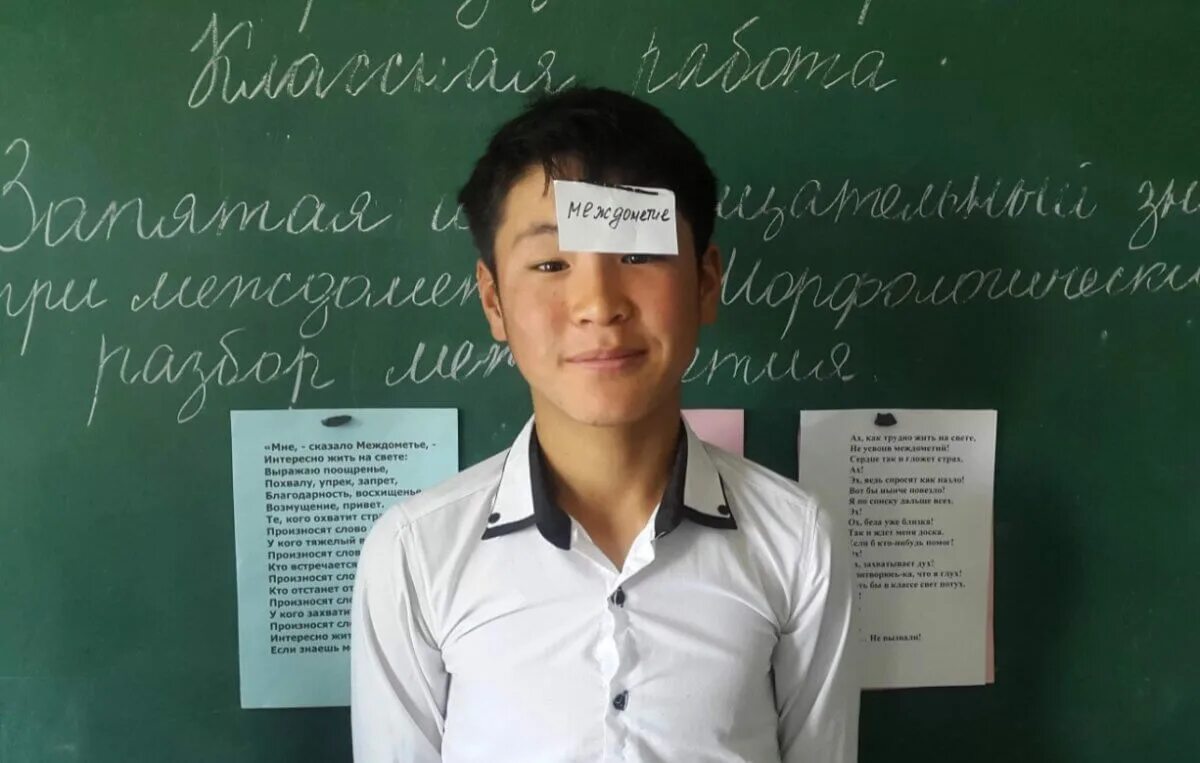 Классная работа.
Запятая и
при
Морфологический
разбор
междометие
«Мне, - сказало Междометье, -
Интересно жить на свете:
Выражаю поощренье,
Похвалу, упрек, запрет,
Благодарность, восхищенье
Возмущение, привет.
Те, кого охватит
Произносят слово
У кого тяжелый
Произносят
Кто встречается
Произносят
Кто отстанет от
Произносят
У кого захватит
Произносят
Интересно
Если знаешь
Ах, как трудно жить на свете,
Не усвоив междометий!
Сердце так и гложет страх.
Ах!
Эх, ведь спросят как назло!
Вот бы нынче повезло!
Я по списку дальше всех.
Эх!
Ох, беда уже близка!
Так и ждет меня доска.
Если б кто-нибудь помог!
захватывает дух!
что я глух!
бы в классе свет потух.
... Не вызвали!